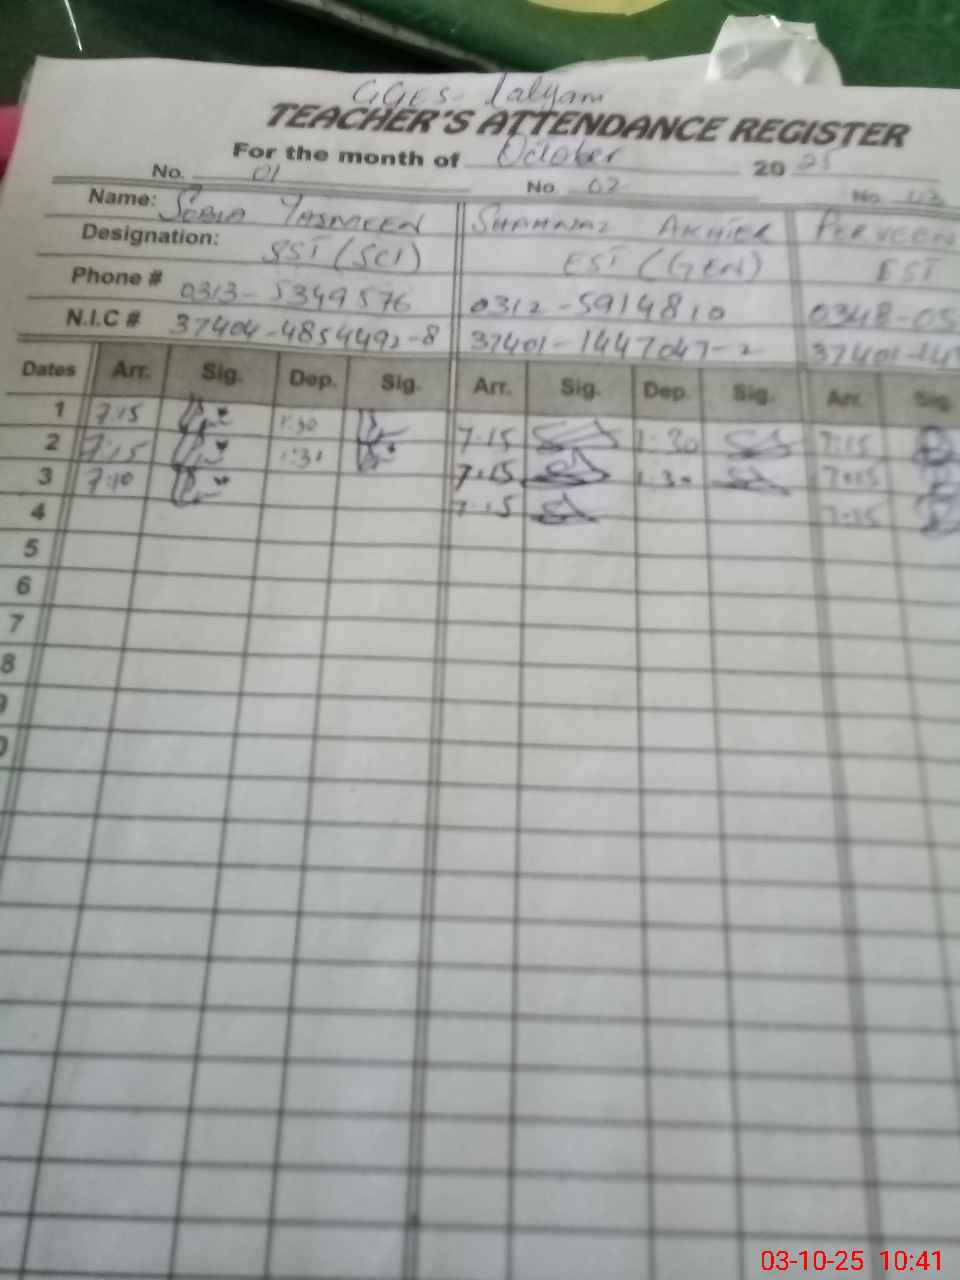 GGES Lalyani
TEACHER'S ATTENDANCE REGISTER
For the month of October 2025
No. 01 No. 02 No. 03
Name: SOBIA YASMEEN SHAHNAZ AKHTER PERVEEN
Designation: SST (SCI) EST (GEN) EST
Phone # 0313-5349576 0312-5914810 0348-05
N.I.C # 37404-4854492-8 37401-1447047-2 37401-14
Dates Arr. Sig. Dep. Sig. Arr. Sig. Dep. Sig. Arr. Sig.
1 7:15 1:30 7:15 1:30 7:15
2 7:15 1:30 7:15 1:30 7:15
3 7:10 7:15 7:15
4
5
6
7
8
03-10-25 10:41